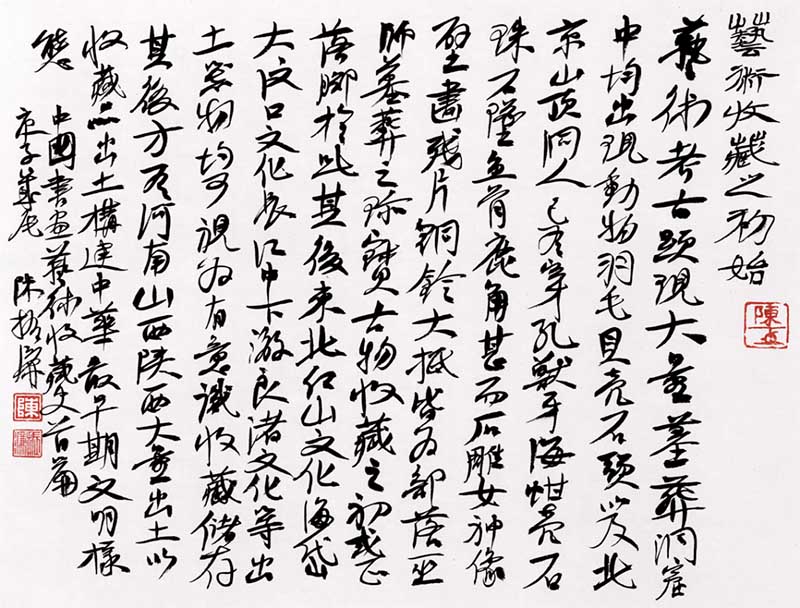 藝術收藏之初始
藝術考古顯現大量墓葬洞窟
中均出現動物羽毛貝壳石頭以及北
京山頂洞人已有穿孔獸牙海蚶壳石
珠石墜魚骨鹿角甚而石雕女神像
壁畫残片銅鈴大抵皆为部落巫
師墓葬之珍寶古物收藏之初或正
落脚於此其後東北红山文化海岱
大汶口文化長江中下游良渚文化等出
土器物均可視为有意識收藏儲存
其後方有河南山西陕西大量出土以
收藏品出土構建中華最早期文明樣
態
中國書画藝術收藏史首篇
庚子尊庵
陳振濂
陳